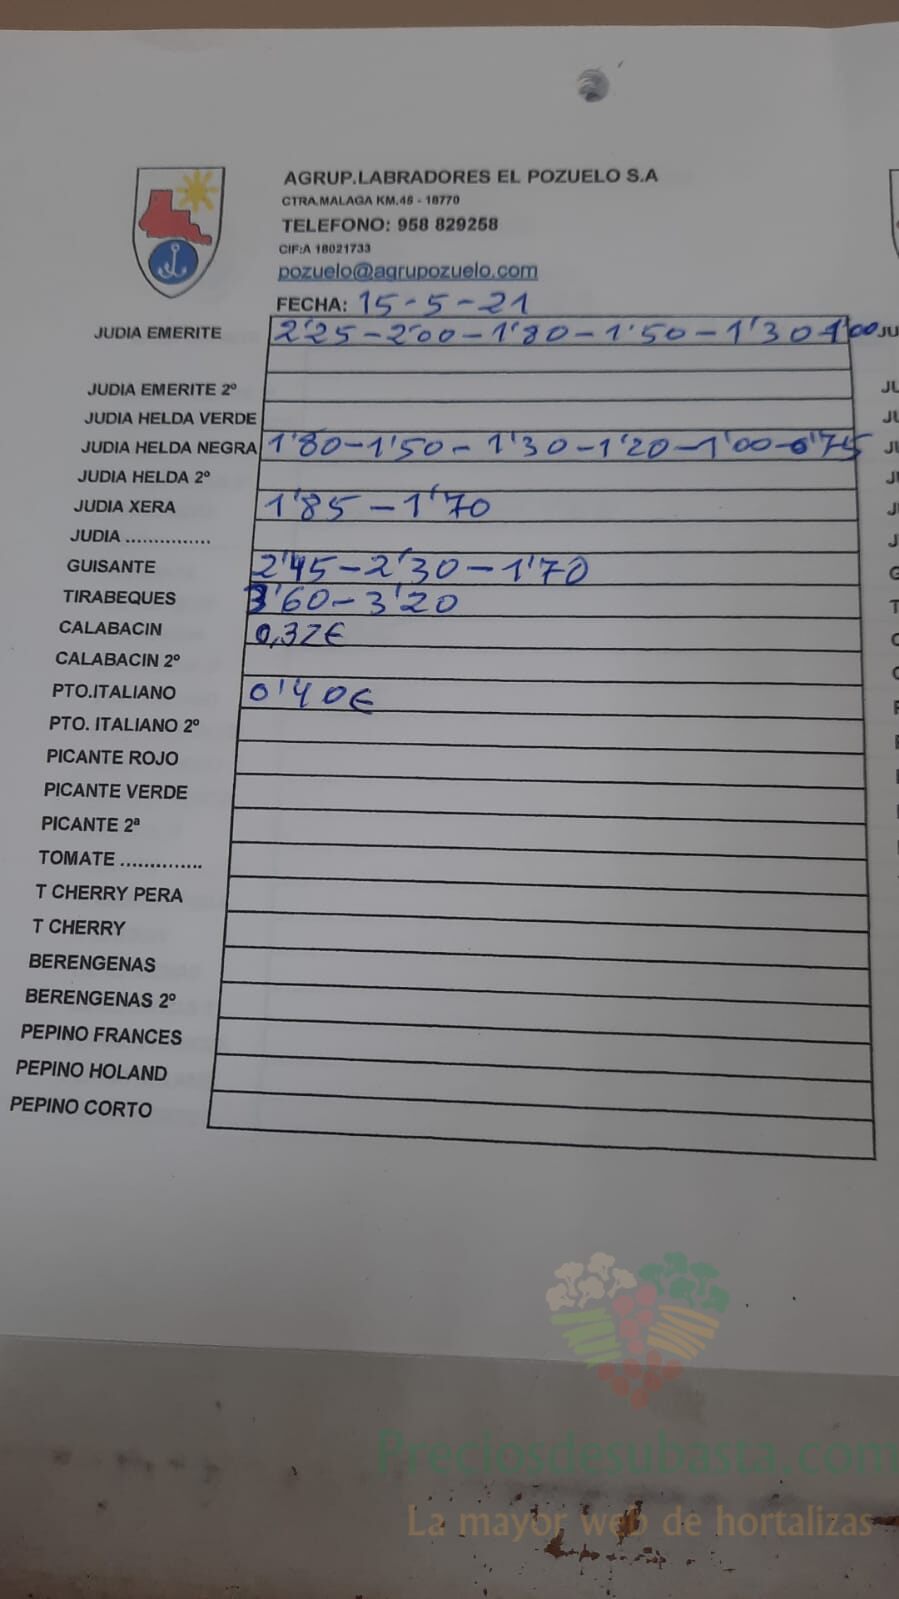 AGRUP.LABRADORES EL POZUELO S.A
CTRA.MALAGA KM.45 - 18770
TELEFONO: 958 829258
CIF:A 18021733
pozuelo@agrupozuelo.com
FECHA: 15-5-21
JUDIA EMERITE 2'25-2'00-1'80-1'50-1'30-1'00 JU
JUDIA EMERITE 2º JU
JUDIA HELDA VERDE JU
JUDIA HELDA NEGRA 1'80-1'50-1'30-1'20-1'00-0'75 JU
JUDIA HELDA 2º JU
JUDIA XERA 1'85-1'70 JU
JUDIA ............... J
GUISANTE 2'45-2'30-1'70 G
TIRABEQUES 3'60-3'20 T
CALABACIN 0,32€ C
CALABACIN 2º C
PTO.ITALIANO 0'40€
PTO. ITALIANO 2º
PICANTE ROJO
PICANTE VERDE
PICANTE 2ª
TOMATE ..............
T CHERRY PERA
T CHERRY
BERENGENAS
BERENGENAS 2º
PEPINO FRANCES
PEPINO HOLAND
PEPINO CORTO
Preciosdesubasta.com
La mayor web de hortalizas